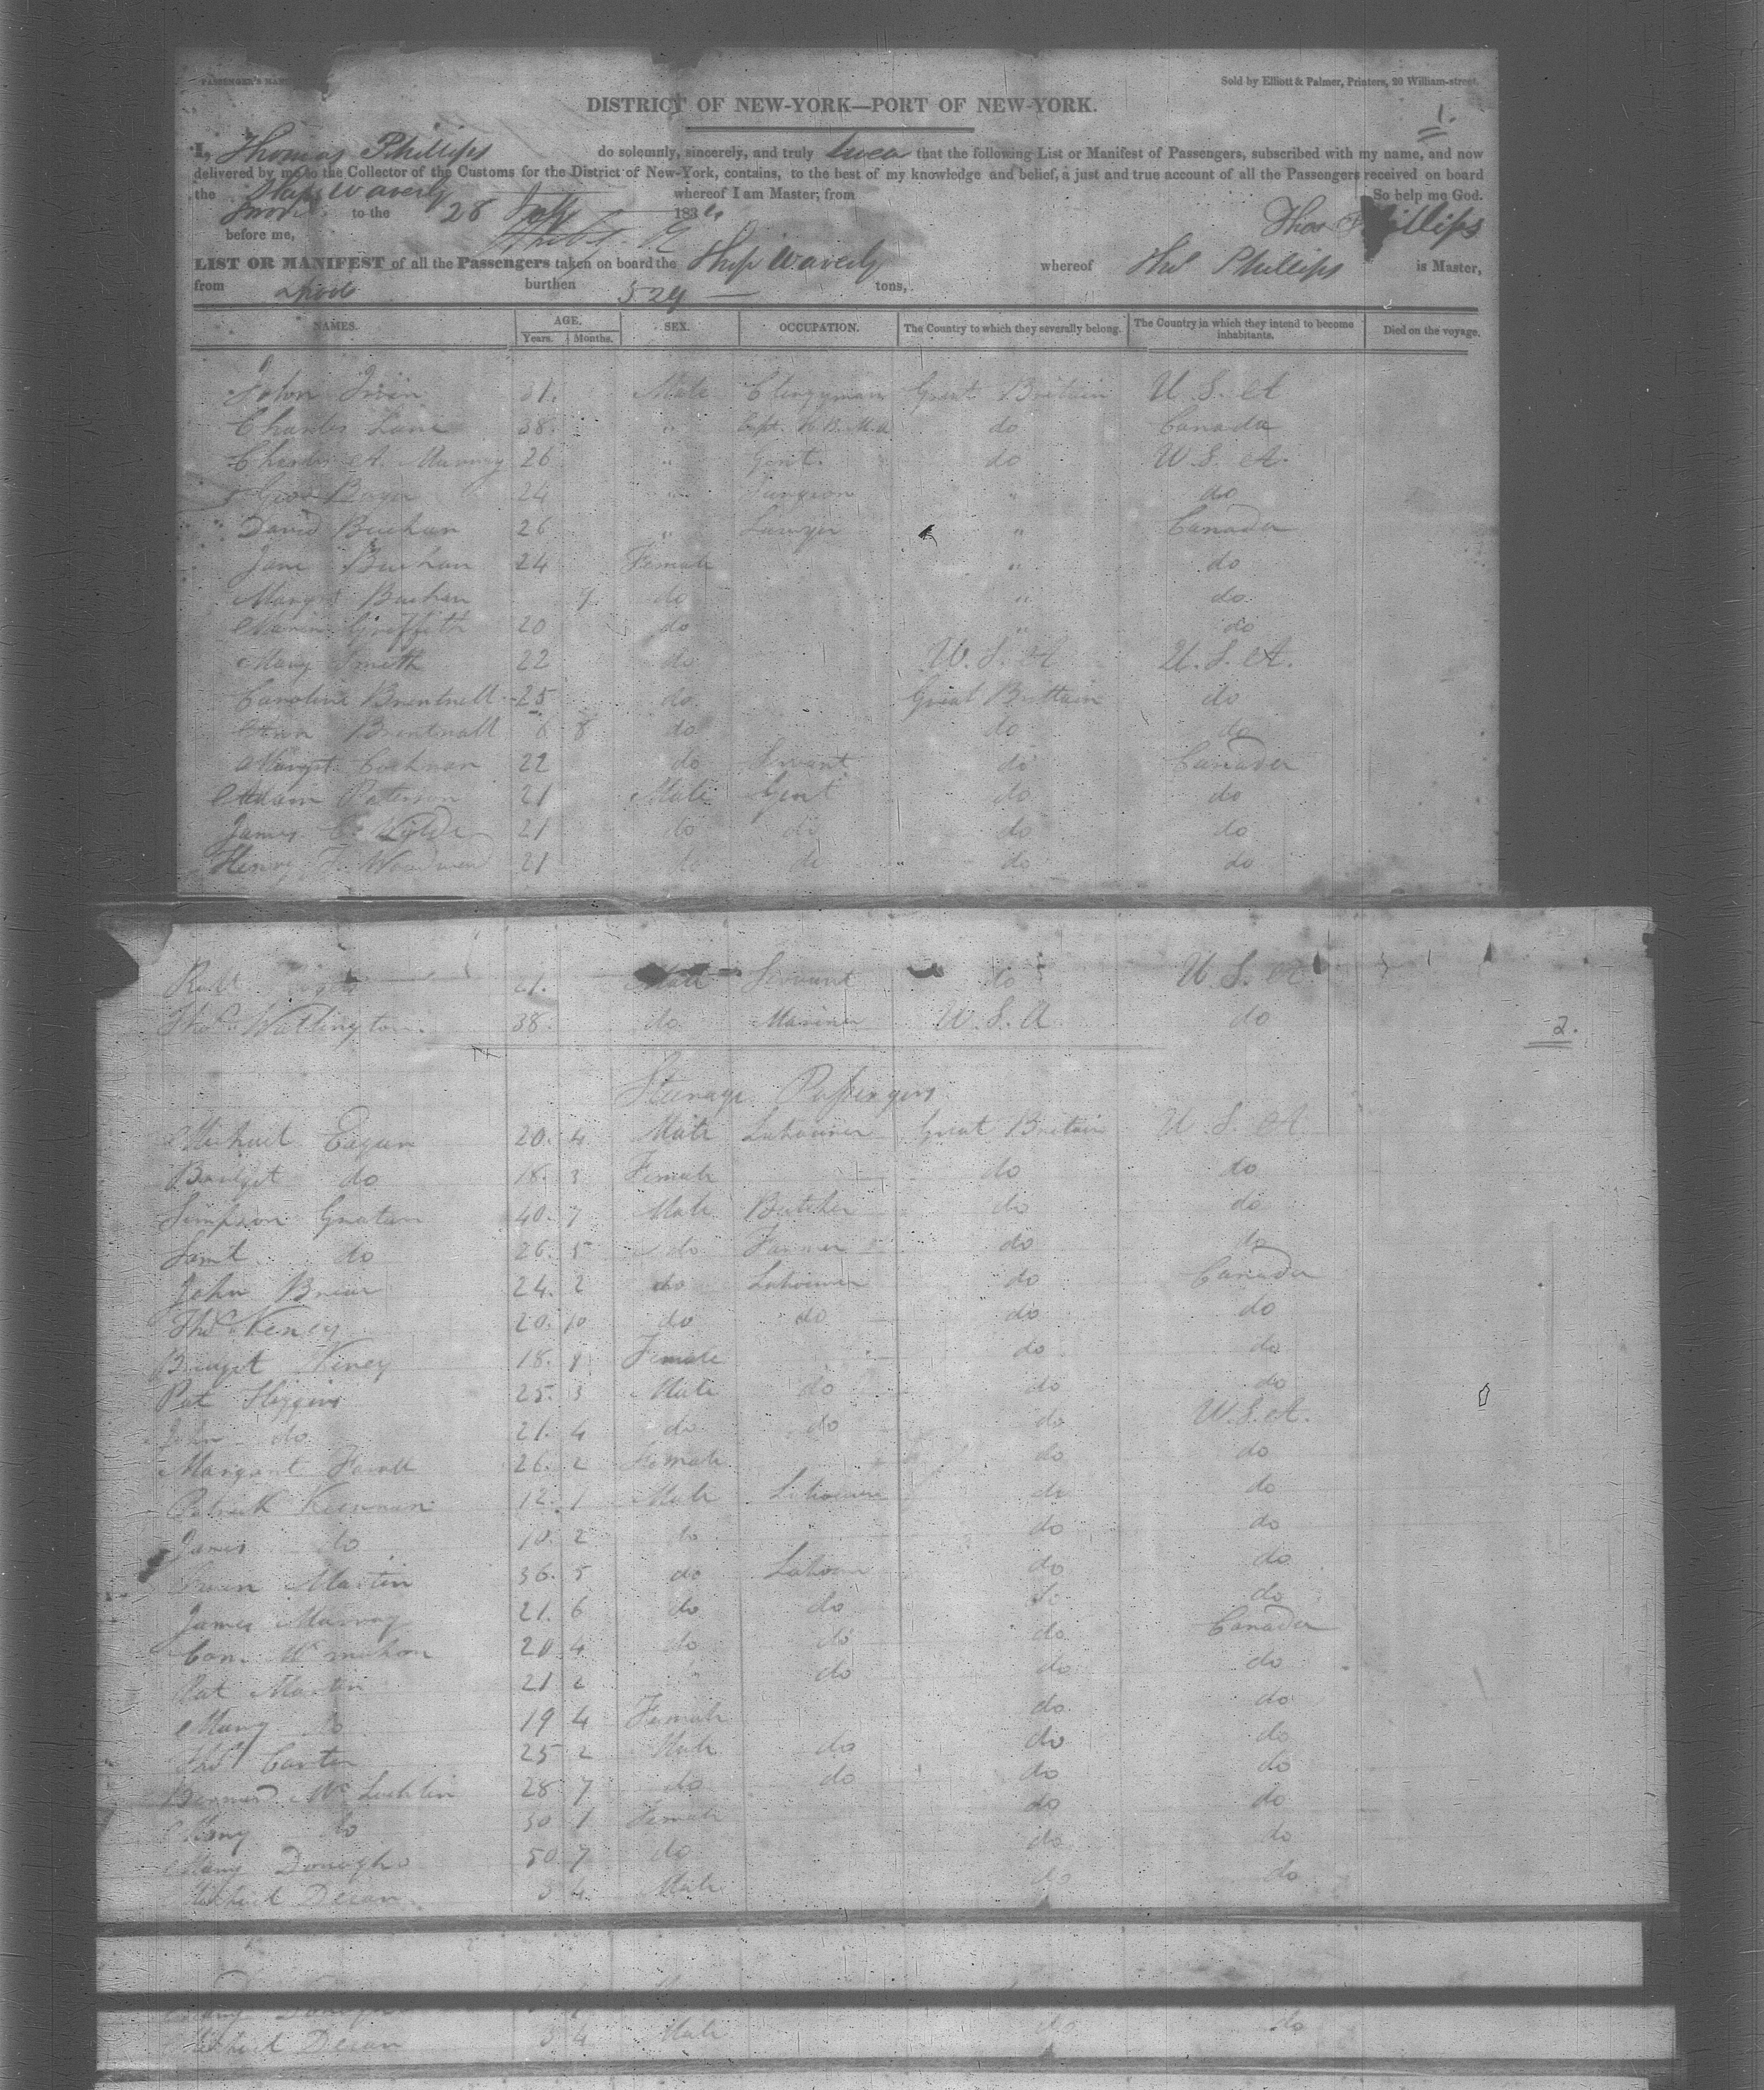 PASSENGER'S MAN
Sold by Elliott & Palmer, Printers, 20 William-street.
DISTRICT OF NEW-YORK—PORT OF NEW-YORK.
1.
I, Thomas Phillips do solemnly, sincerely, and truly swear that the following List or Manifest of Passengers, subscribed with my name, and now
delivered by me to the Collector of the Customs for the District of New-York, contains, to the best of my knowledge and belief, a just and true account of all the Passengers received on board
the Ship Waverly whereof I am Master, from So help me God.
to the 28 July 183
Thos Phillips
before me,
LIST OR MANIFEST of all the Passengers taken on board the Ship Waverly whereof Thos Phillips is Master,
from burthen 529 tons,
NAMES. AGE. SEX. OCCUPATION. The Country to which they severally belong. The Country in which they intend to become inhabitants. Died on the voyage.
Years. Months.
John Irvin 31. Male Clergyman Great Britain U.S.A
Charles Lane 38. " Capt. H.B.M.A do Canada
Charles A. Murray 26 " Gent. do U.S.A.
Geo Boyer 24 " Surgeon " do
David Buchan 26 " Lawyer " Canada
Jane Buchan 24 Female " do
Margt Buchan 9 do " do
Griffith 20 do " do
Mary Smith 22 do U.S.A U.S.A.
Caroline Brentnall 25 do Great Brittain do
Ann Brentnall 6 8 do do do
Margt. Cochran 22 do Servant do Canada
Adam Paterson 21 Male Gent do do
James C. Wylde 21 do do do do
Henry F. Woodward 21 do do do do
Robt 21. Male Servant do U.S.A.
Thos Watlington. 38. do Mariner U.S.A do
2.
Steerage Passengers
Michael Eagan 20. 4 Male Labourer Great Britain U.S.A
Bridget do 18. 3 Female do do
Simpson Gratan 40. 7 Male Butcher do do
Saml do 26. 5 do Farmer do do
John Briar 24. 2 do Labourer do Canada
Thos Keney 20. 10 do do do do
Bridget Keney 18. 9 Female do do
Pat Higgins 25. 3 Male do do do
John do 21. 4 do do do U.S.A.
Margaret Farrell 26. 2 Female do do
Patrick Keernan 12. 1 Male Labourer do do
James do 10. 2 do do do
Martin 36. 5 do Labour do do
James Murray 21. 6 do do do do
Con. McMahon 20 4 do do do Canada
Pat Martin 21 2 do do do do
Mary do 19 4 Female do do
Thos Carter 25 2 Male do do do
Bernard McLochlin 28 7 do do do do
Mary do 30 1 Female do do
Mary Donogho 50 7 do do do
Michael Deran 3 4 Male do do
Mary
Michael Deran 3 4 Male do do